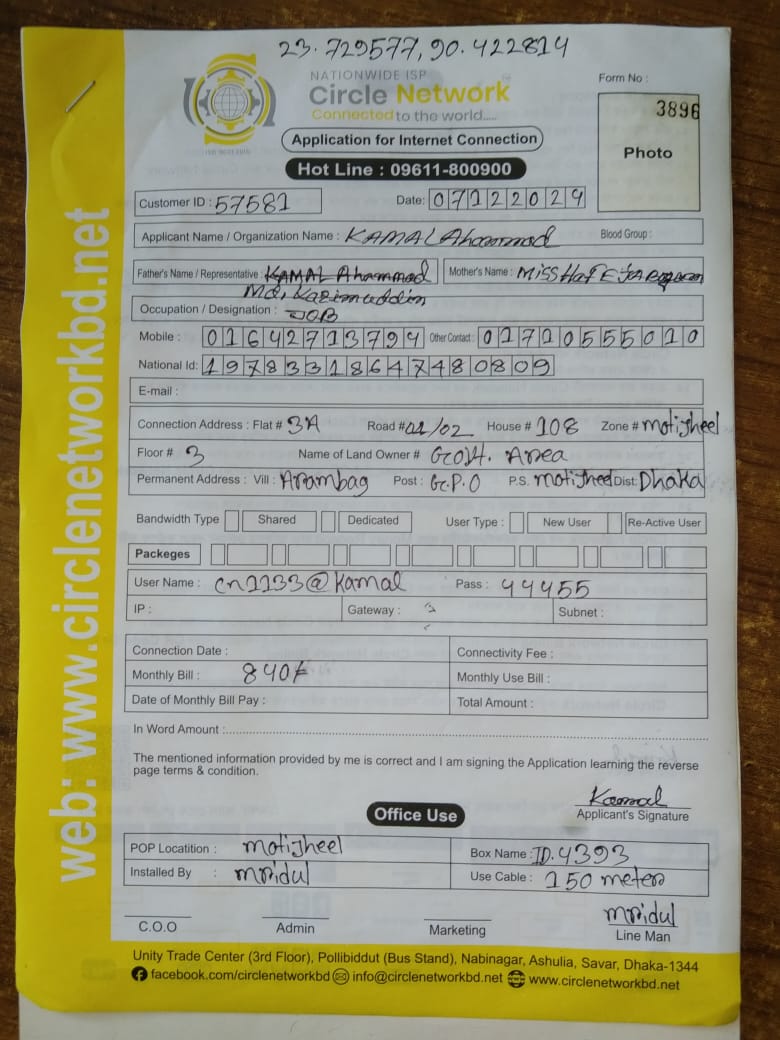 23.729577, 90.422814
NATIONWIDE ISP
Circle Network
Connected to the world.....
Form No :
3896
Photo
Application for Internet Connection
Hot Line : 09611-800900
Customer ID : 57581
Date: 07122024
Applicant Name / Organization Name : KAMAL Ahammad
Blood Group :
Father's Name / Representative : KAMAL Ahammad
Mother's Name : MISS HafEJA
Md. Kazimuddin
Occupation / Designation : JOB
Mobile : 01642713794 Other Contact : 01710555010
National Id: 19783318647480809
E-mail :
Connection Address : Flat # 3A Road # 01/02 House # 108 Zone # motijheel
Floor # 3 Name of Land Owner # Govt. Area
Permanent Address : Vill : Arambag Post : G.P.O P.S. motijheel Dist: Dhaka
Bandwidth Type Shared Dedicated User Type : New User Re-Active User
Packeges
User Name : cn1133@kamal Pass : 44455
IP : Gateway : Subnet :
Connection Date : Connectivity Fee :
Monthly Bill : 840/ Monthly Use Bill :
Date of Monthly Bill Pay : Total Amount :
In Word Amount :
The mentioned information provided by me is correct and I am signing the Application learning the reverse
page terms & condition.
Kamal
Applicant's Signature
Office Use
POP Locatition : motijheel Box Name : ID.4393
Installed By : mridul Use Cable : 150 meter
mridul
C.O.O Admin Marketing Line Man
Unity Trade Center (3rd Floor), Pollibiddut (Bus Stand), Nabinagar, Ashulia, Savar, Dhaka-1344
facebook.com/circlenetworkbd info@circlenetworkbd.net www.circlenetworkbd.net
web: www.circlenetworkbd.net